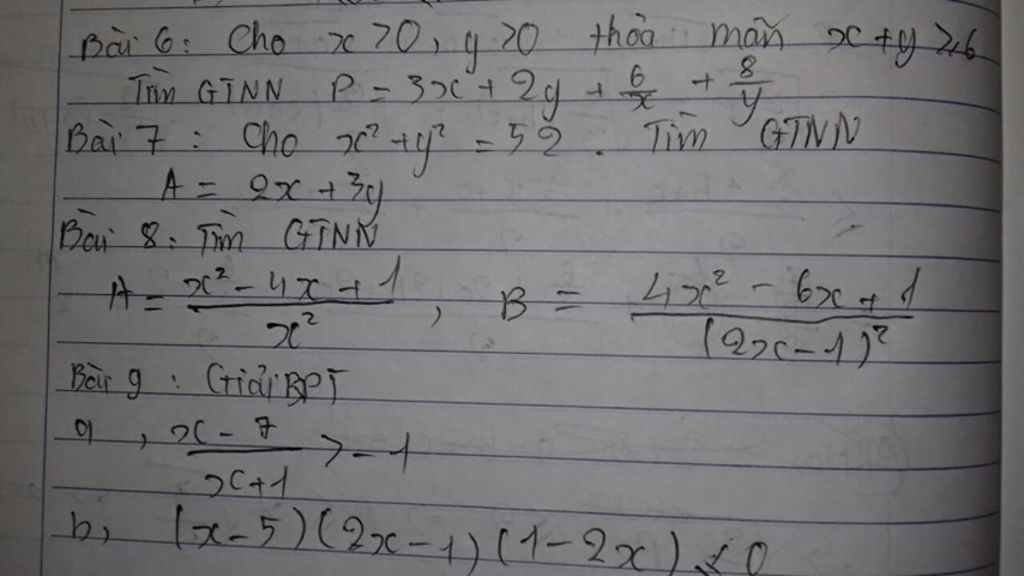 Bài 6: Cho x > 0, y > 0 thỏa mãn x + y ≥ 6
Tìm GTNN P = 3x + 2y + 6/x + 8/y
Bài 7: Cho x² + y² = 52. Tìm GTNN
A = 2x + 3y
Bài 8: Tìm GTNN
A = (x² - 4x + 1)/x², B = (4x² - 6x + 1)/(2x - 1)²
Bài 9: Giải BPT
a, (x - 7)/(x + 1) > -1
b, (x - 5)(2x - 1)(1 - 2x) ≤ 0